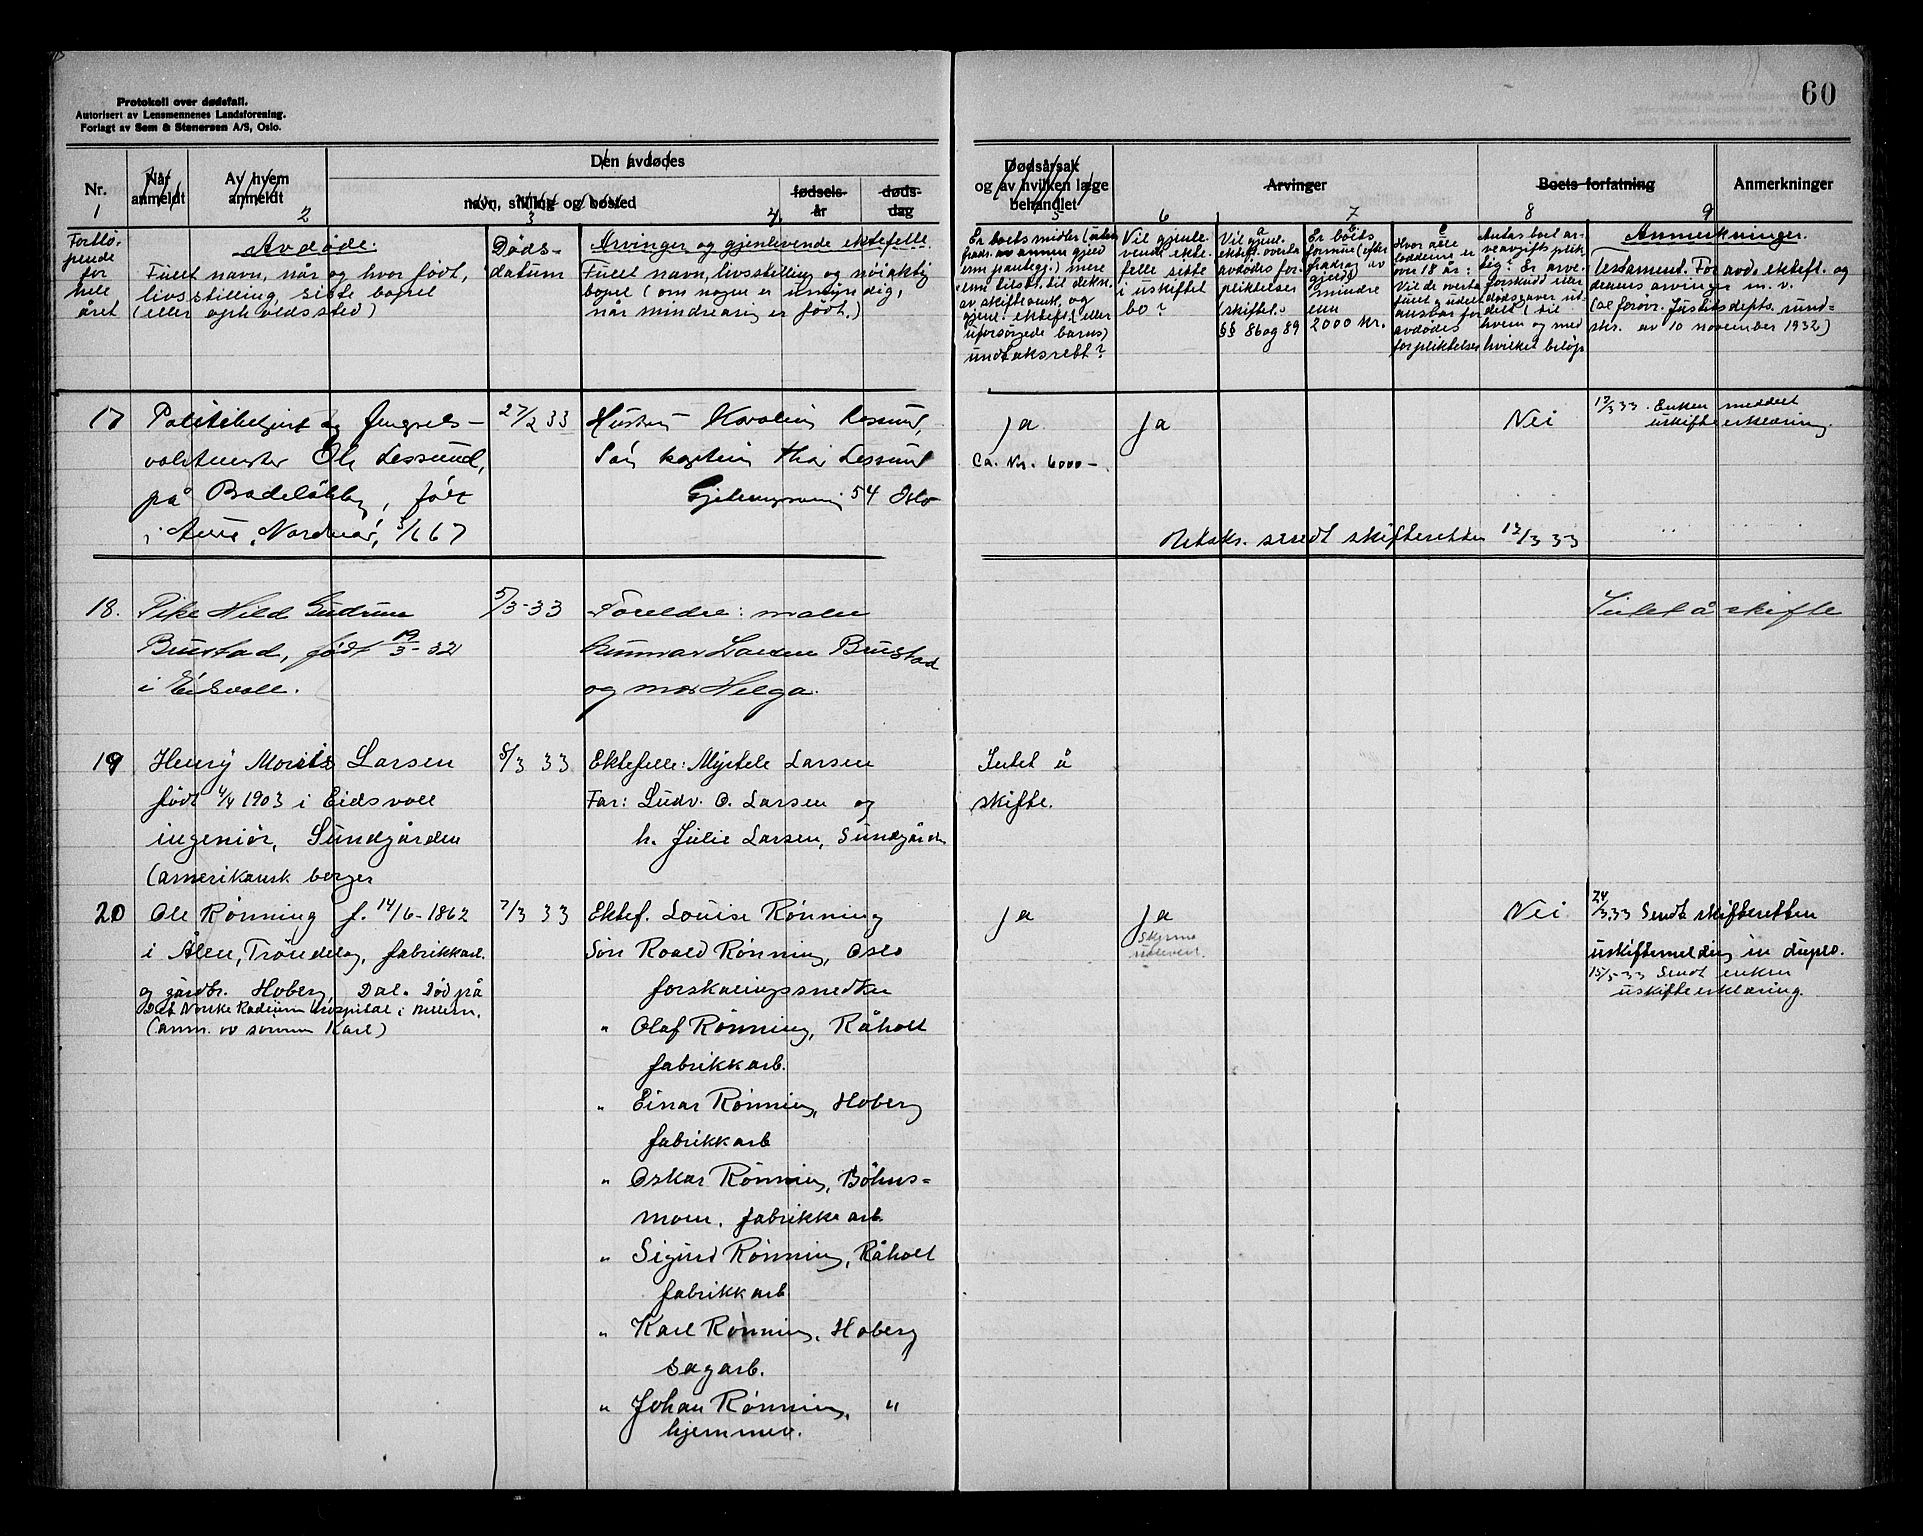 60
Protokoll over dødsfall.
Autorisert av Lensmennenes Landsforening.
Forlagt av Sem & Stenersen A/S, Oslo.
Nr.
Når anmeldt
Av hvem anmeldt
Den avdødes
navn, stilling og bosted
fødsels-
år
døds-
dag
Dødsårsak
og av hvilken læge
behandlet
Arvinger
Boets forfatning
Anmerkninger
1
2
3
4
5
6
7
8
9
Fortlø-
pende
for
hele
året
Avdøde:
Fullt navn, når og hvor født,
livsstilling, siste bopel
(eller opholdssted)
Døds-
datum
Arvinger og gjenlevende ektefelle.
Fullt navn, livsstilling og nøiaktig
bopel (om nogen er umyndig,
når mindreårig er født.)
Er boets midler (uten
fradr. av annen gjeld
enn pantegj.) mere
enn tilstr. til dekn.
av skifteomk. og
gjenl. ektef. (eller
uforsørgede barns)
undtaksrett?
Vil gjenle-
vende ekte-
felle sitte
i uskiftet
bo?
Vil gjenl.
ektef. overta
avdødes for-
pliktelser
(skiftel.
§§ 86 og 89
Er boets
formue (efter
fradrag av
gjeld)
mindre
enn
2000 kr.
Hvor alle
loddeierne er
over 18 år:
Vil de overta
fullt og udelt
ansvar for
avdødes
forpliktelser
Antas boet ar-
veavgiftsplik-
tig? Er arve-
forskudd eller
dødsgaver ut-
delt (til
hvem og med
hvilket beløp
Anmerkninger.
Testament. For avd. ektef. og
dennes arvinger m. v.
(Se forøv. Justisdepts. rund-
skr. av 10 november 1932)
17
Politibetjent og fengsels-
vaktmester Ole Lessund,
på Badeløkken, født
i Aure, Nordmør, 5/6 67
27/2 33
Hustru Karoline Lessund,
Søn kaptein Thor Lessund
54 Oslo
Ja
Ca. Kr. 6000-
Ja
Nei
17/3 33. Enken meddelt
uskifteerklæring.
sendt skifteretten 12/3 33
18.
Pike Hild Gudrun
Brustad, født 19/3-32
i Eidsvoll.
5/3-33
Foreldre: maler
Gunnar Larsen Brustad
og mor Helga.
Intet å skifte
19
Henry Moritz Larsen
født 4/4 1903 i Eidsvoll
ingeniør, Sundgården
(amerikansk borger
8/3 33
Ektefelle: Myrtele Larsen
Far: Ludv. O. Larsen og
h. Julie Larsen, Sundgården
Intet å
skifte.
20
Ole Rønning f. 14/6-1862
i Ålen, Trøndelag, fabrikkarb.
og gårdbr. Hoberg Dal. Død på
Det Norske Radium Hospital i Aker.
(anm. av sønnen Karl)
7/3 33
Ektef. Louise Rønning
Søn Roald Rønning, Oslo
forskalingssnedker
" Olaf Rønning, Råholt
fabrikkarb.
" Einar Rønning, Hoberg
fabrikkarb
" Oskar Rønning, Bøhns-
moen. fabrikkarb.
" Sigurd Rønning, Råholt
fabrikkarb
" Karl Rønning, Hoberg
sagarb.
" Johan Rønning, "
hjemmev.
Ja
Ja
Skjema
utlevert.
Nei
24/3.33 Sendt skifteretten
uskiftemelding in duplo.
15/5-33 Sendt enken
uskifteerklæring.